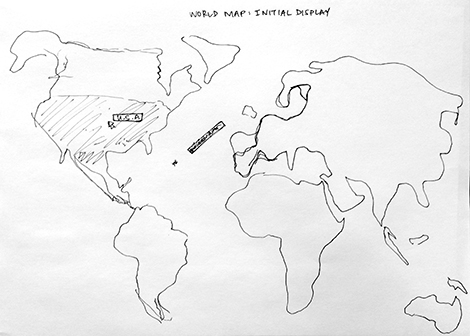 WORLD MAP: INITIAL DISPLAY
U.S.A